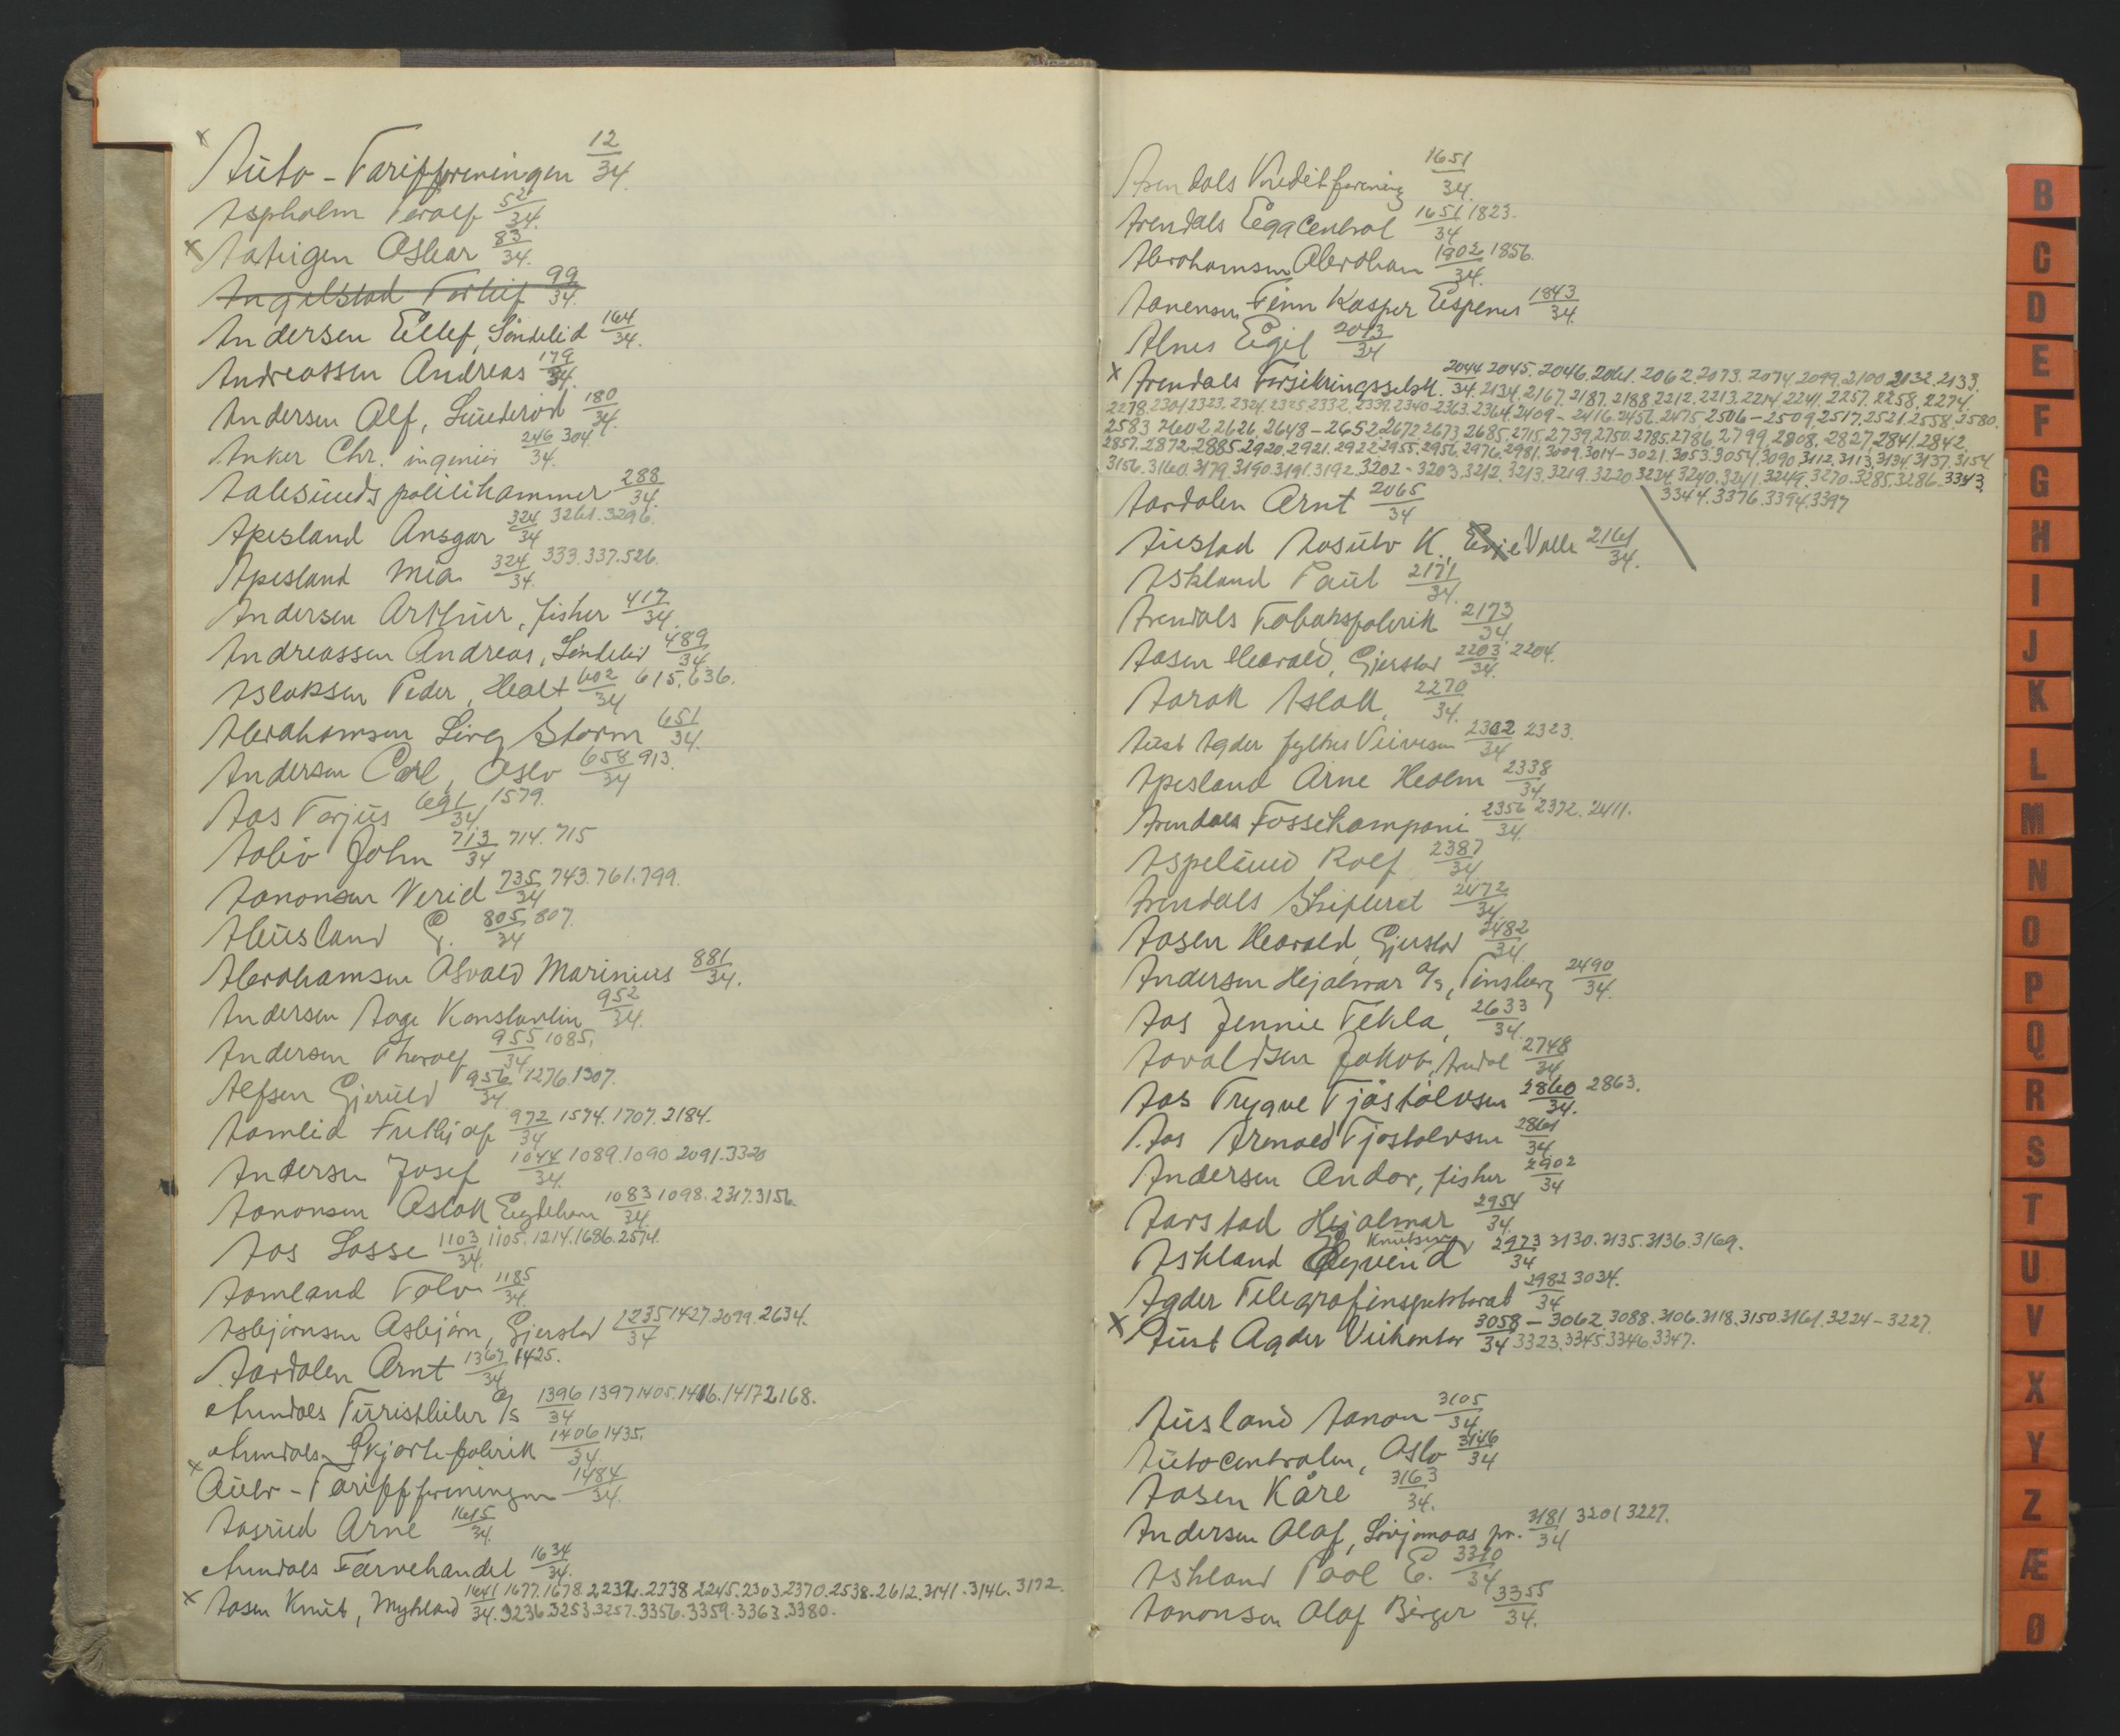 x Auto-Tarifforeningen 12/34.
Aspholm Torolf 52/34.
x Aateigen Oskar 83/34.
Angelstad Torleif 99/34.
Andersen Ellef, Söndeled 164/34.
Andreassen Andreas 179/34.
Andersen Alf, 180/34.
Anker Chr. ingeniør 246/34. 304
Aalesunds politikammer 288/34.
Apesland Ansgar 324/34 3261. 3296.
Apesland Mia 324/34. 333. 337. 526.
Andersen Arthur, fisker 417/34.
Andreassen Andreas, Söndeled 489/34.
Aslaksen Peder, Holt 602/34 615. 636.
Abrahamsen Storm 651/34.
Andersen Carl, Oslo 658/34 913.
Aas Torjus 691/34. 1579.
Aabø John 713/34 714. 715
Aanonsen Verid 735/34 743. 761. 799.
Abusland G. 805/34 807.
Abrahamsen Osvald Marinius 881/34.
Andersen Aage Konstantin 952/34.
Andersen Thorolf 955/34 1085.
Alfsen Gjeruld 956/34 1276. 1307.
Aamlid Fritjof 972/34 1574. 1707. 2184.
Andersen Josef 1044/34. 1089. 1090 2091. 3320
Aanonsen Aslak 1083/34. 1098. 2317. 3156.
Aas Lasse 1103/34. 1105. 1214. 1686. 2574.
Aamland Tolv 1185/34.
Asbjørnsen Asbjørn, Gjerstad 1235/34 1427. 2099. 2634.
Aardalen Arnt 1367/34 1425.
Arendals Turistbiler A/s 1396/34 1397 1405. 1416. 1417 2168.
Arendals Skjortefabrik 1406/34. 1435.
x Auto-Tariffforeningen 1484/34.
Aasrud Arne 1615/34.
Arendals Farvehandel 1634/34.
x Aasen Knut, Mykland 1641/34. 1677. 1678. 2232. 2238 2245. 2303. 2370. 2538. 2612. 3141. 3146. 3172.
3236. 3253. 3257. 3356. 3359. 3363. 3380.
Arendals Kreditforening 1651/34.
Arendals Eggcentral 1651/34 1823.
Abrahamsen Abraham 1802/34. 1856.
Aanensen Finn Kasper Espenes 1843/34.
Alnes Egil 2013/34
x Arendals Forsikringsselsk. 2044/34. 2045. 2046. 2061. 2062. 2073. 2074. 2099. 2100. 2132. 2133.
2134. 2167. 2187. 2188 2212. 2213. 2214 2241. 2257. 2258. 2274.
2278. 2301 2323. 2324. 2325. 2332. 2339. 2340. 2363. 2364. 2409-2416. 2456. 2475, 2506-2509. 2517. 2521. 2558. 2580.
2583 2602. 2626, 2648-2652 2672 2673 2685. 2715. 2739. 2750. 2785. 2786 2799. 2808. 2827, 2841. 2842.
2857. 2872. 2885. 2920. 2921. 2922 2955. 2956. 2976. 2981. 3009. 3014-3021. 3053. 3054. 3090 3112. 3113. 3134. 3137. 3154
3156. 3160. 3179. 3190. 3191. 3192. 3202-3203. 3212. 3213. 3219. 3220. 3234. 3240. 3241. 3249. 3270. 3285. 3286. 3343.
3344. 3376. 3394. 3397
Aardalen Arnt 2065/34
Austad Aasulv K., Evje Valle 2161/34.
Askland Paul 2171/34.
Arendals Tobaksfabrik 2173/34.
Aasen Harald, Gjerstad 2203/34. 2204.
Aarak Aslak, 2270/34.
Aust Agder fylkes Veivesen 2302/34 2323.
Apesland Arne Holm 2338/34.
Arendals Fossekompani 2356/34. 2372. 2411.
Aspelund Rolf 2387/34
Arendals Skifteret 2472/34.
Aasen Harald, Gjerstad 2482/34.
Andersen Hjalmar A/s, Tønsberg 2490/34.
Aas Jennie Tekla, 2633/34.
Aavaldsen Jakob, Arendal 2748/34.
Aas Trygve Tjøstolvsen 2860/34. 2863.
Aas Arnold Tjøstolvsen 2861/34.
Andersen Andor, fisker 2902/34
Aarstad Hjalmar 2954/34.
Askland Øyvind Knutsen 2973/34 3130. 3135. 3136. 3169.
Agder Telegrafinspektorat 2982/34 3034.
x Aust Agder Veikontor 3058/34 - 3062. 3088. 3106. 3118. 3150. 3161. 3224-3227.
3323. 3345. 3346. 3347.
Ausland Aanon 3105/34
Autocentralen, Oslo 3146/34
Aasen Kåre 3163/34.
Andersen Olaf, pr. 3181/34 3201 3227.
Askland Paal E. 3310/34
Aanonsen Olaf Birger 3355/34.
B
C
D
E
F
G
H
I
J
K
L
M
N
O
P
Q
R
S
T
U
V
X
Y
Z
Æ
Ø